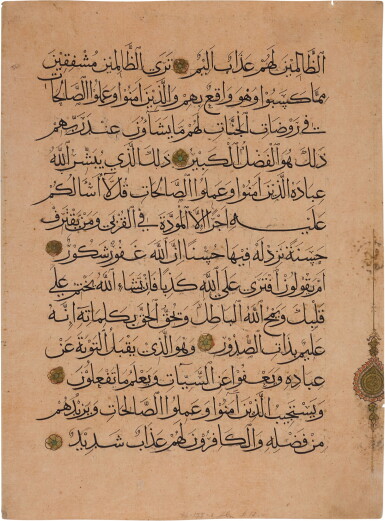 الظالمين لهم عذاب اليم ترى الظالمين مشفقين
مما كسبوا وهو واقع بهم والذين امنوا وعملوا الصالحا
ت في روضات الجنات لهم ما يشاؤن عند ربهم
ذلك هو الفضل الكبير ذلك الذي يبشر الله
عباده الذين امنوا وعملوا الصالحات قل لا اسالكم
عليه اجرا الا المودة في القربى ومن يقترف
حسنة نزد له فيها حسنا ان الله غفور شكور
ام يقولون افترى على الله كذبا فان يشاء الله يختم على
قلبك ويمح الله الباطل ويحق الحق بكلماته انه
عليم بذات الصدور وهو الذي يقبل التوبة عن
عباده ويعفوا عن السيئات ويعلم ما تفعلون
ويستجيب الذين امنوا وعملوا الصالحات ويزيدهم
من فضله والكافرون لهم عذاب شديد